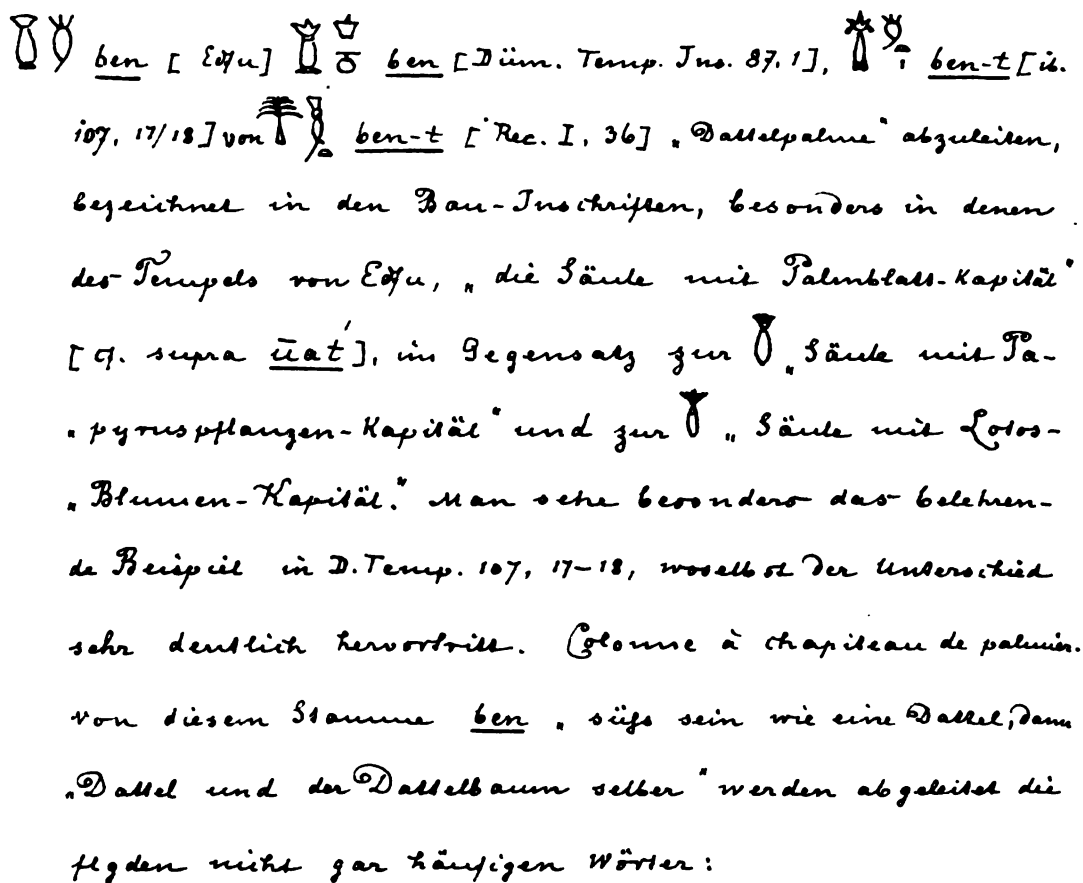 ben [Edfu] ben [Düm. Temp. Ins. 87,1], ben-t [ib.
107, 17/18] von ben-t [Rec. I, 36] „Dattelpalme“ abzuleiten,
bezeichnet in den Bau-Inschriften, besonders in denen
des Tempels von Edfu, „die Säule mit Palmblatt-Kapitäl“
[cf. supra ūat́], im Gegensatz zur „Säule mit Pa-
„pyruspflanzen-Kapitäl“ und zur „Säule mit Lotos-
„Blumen-Kapitäl.“ Man sehe besonders das belehren-
de Beispiel in D. Temp. 107, 17-18, woselbst der Unterschied
sehr deutlich hervortritt. Colonne à chapiteau de palmier.
von diesem Stamme ben „süß sein wie eine Dattel, dann
„Dattel und der Dattelbaum selber“ werden abgeleitet die
flgden nicht gar häufigen Wörter: